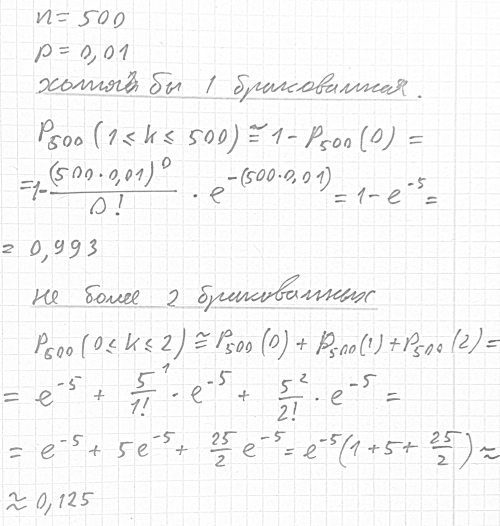 n = 500
p = 0,01
хотя бы 1 бракованная.
P₅₀₀ (1 ≤ k ≤ 500) ≅ 1 - P₅₀₀ (0) =
= 1 - (500 · 0,01)⁰ / 0! · e^-(500·0,01) = 1 - e⁻⁵ =
= 0,993
не более 2 бракованных
P₅₀₀ (0 ≤ k ≤ 2) ≅ P₅₀₀ (0) + P₅₀₀ (1) + P₅₀₀ (2) =
= e⁻⁵ + 5¹ / 1! · e⁻⁵ + 5² / 2! · e⁻⁵ =
= e⁻⁵ + 5e⁻⁵ + 25/2 e⁻⁵ = e⁻⁵ (1 + 5 + 25/2) ≈
≈ 0,125